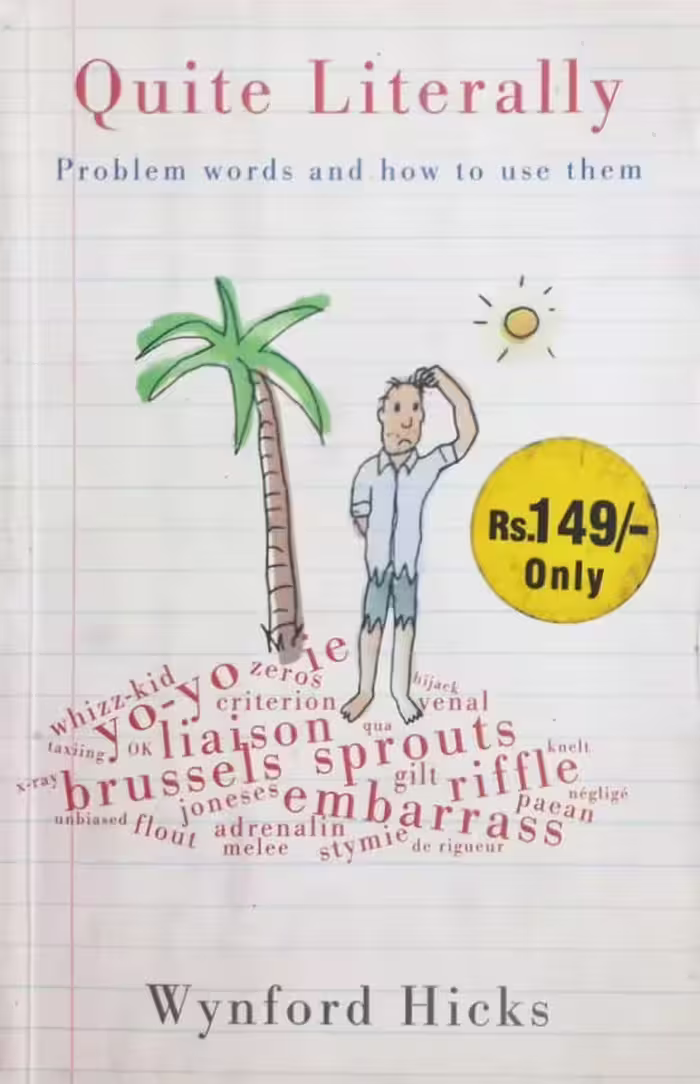 Quite Literally
Problem words and how to use them
Rs.149/-
Only
ie
whizz-kid
yo-yo
zeros
hijack
criterion
venal
taxiing
OK
liaison
qua
sprouts
knelt
x-ray
brussels
gilt
riffle
négligé
joneses
embarrass
paean
unbiased
flout
adrenalin
melee
stymie
de rigueur
Wynford Hicks